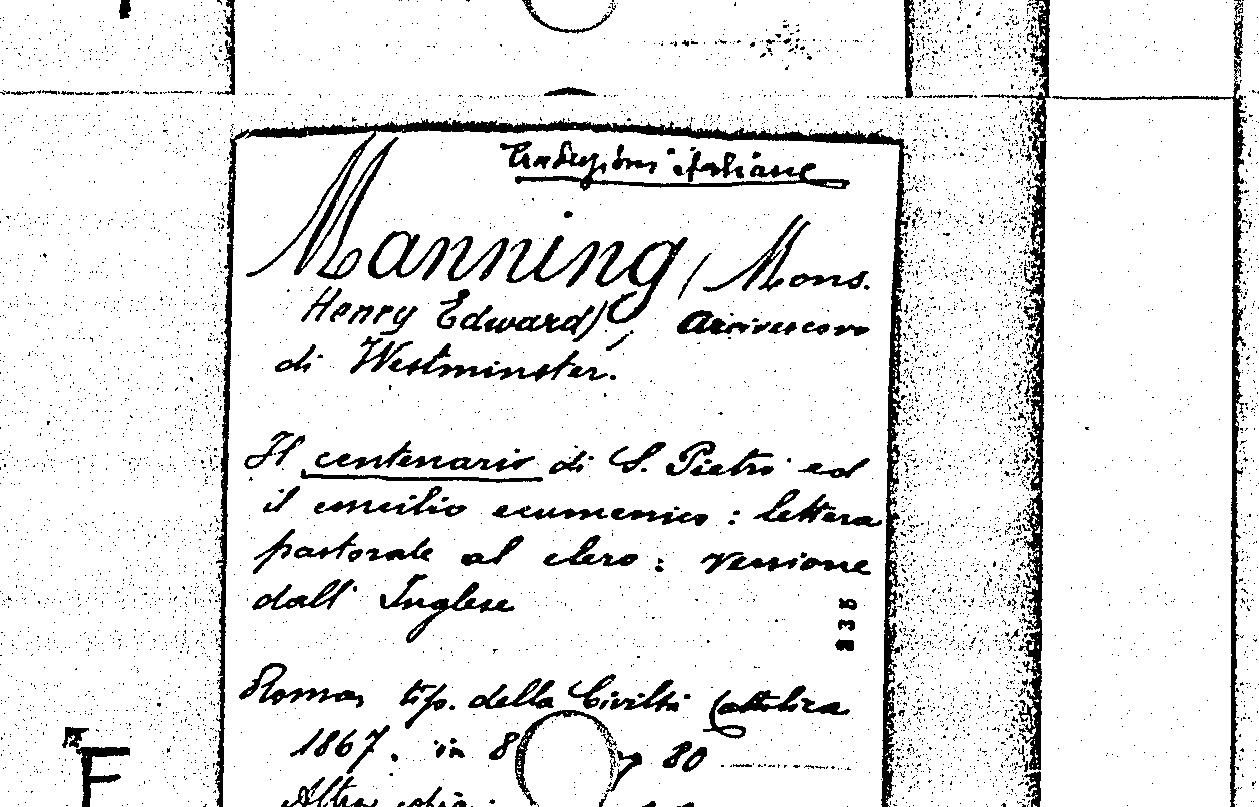 Traduzioni italiane
Manning, (Mons.
Henry Edward), Arcivescovo
di Westminster.
Il centenario di S. Pietro ed
il concilio ecumenico : lettera
pastorale al clero : versione
dall' Inglese
835
Roma, tip. della Civiltà Cattolica
1867. in 8 p 80
Altra copia.
F